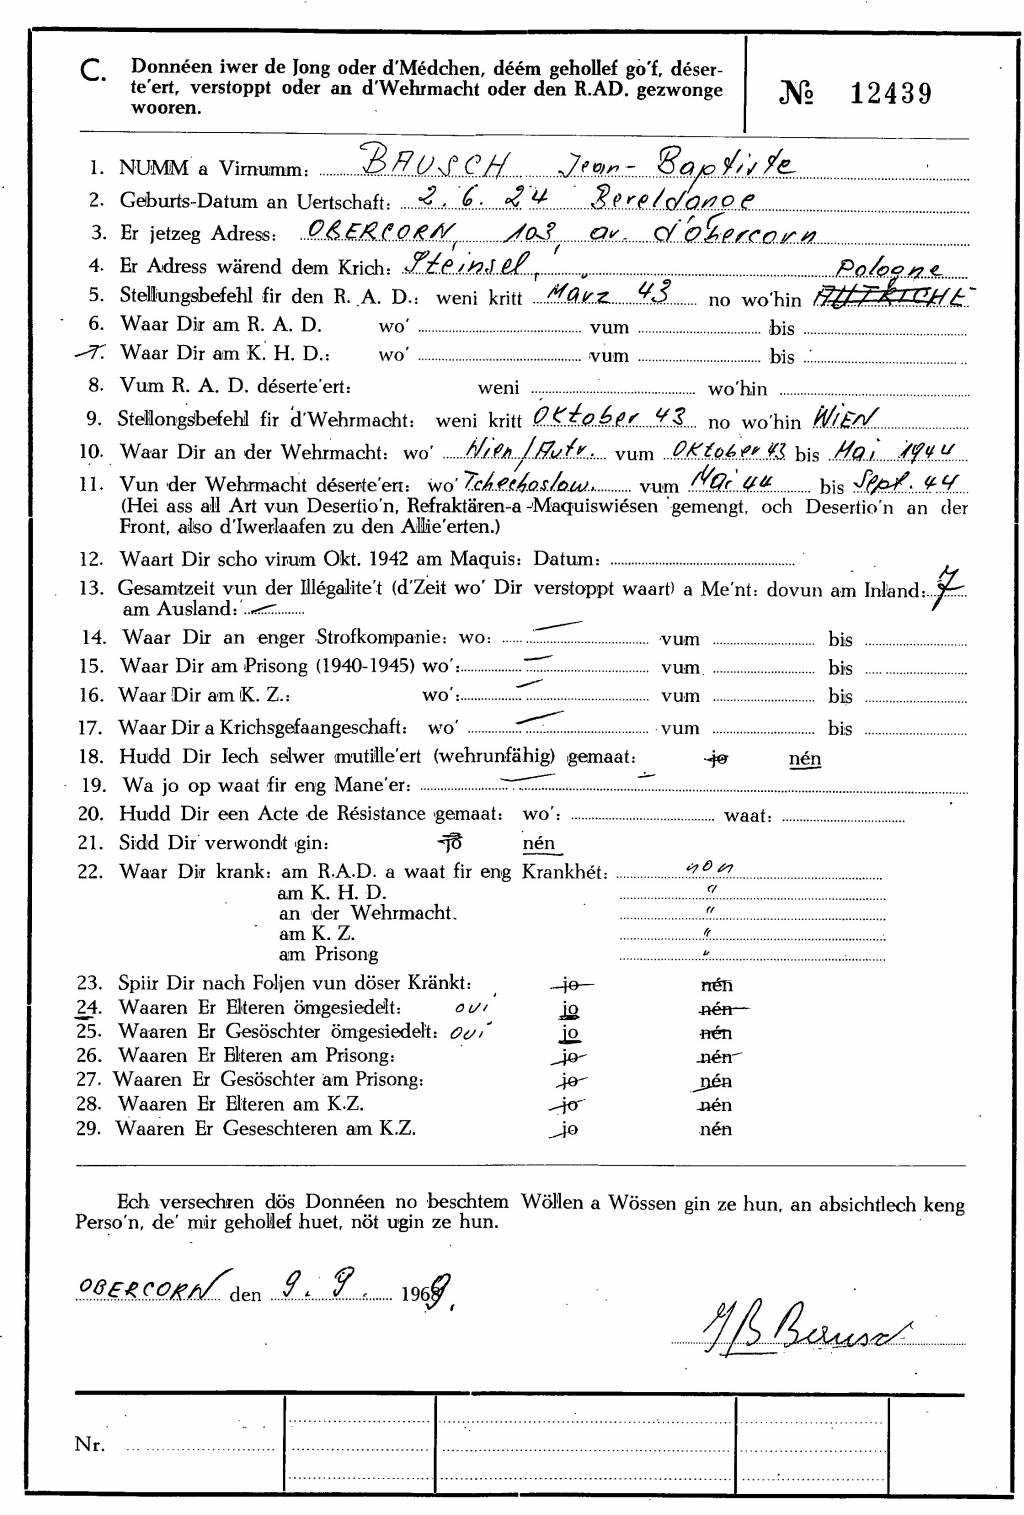 C. Donnéen iwer de Jong oder d'Médchen, déém gehollef go'f, déser-
te'ert, verstoppt oder an d'Wehrmacht oder den R.AD. gezwonge
wooren.
№ 12439
1. NUMM a Virnumm: BAUSCH Jean-Baptiste
2. Geburts-Datum an Uertschaft: 2. 6. 24 Bereldange
3. Er jetzeg Adress: OBERCORN, 103, av. d'Obercorn
4. Er Adress wärend dem Krich: Steinsel,
Pologne
5. Stellungsbefehl fir den R. A. D.: weni kritt März 43 no wo'hin AUTRICHE
6. Waar Dir am R. A. D. wo' vum bis
7. Waar Dir am K. H. D.: wo' vum bis
8. Vum R. A. D. déserte'ert: weni wo'hin
9. Stellongsbefehl fir d'Wehrmacht: weni kritt Oktober 43 no wo'hin WIEN
10. Waar Dir an der Wehrmacht: wo' Wien/Autr. vum Oktober 43 bis Mai 1944
11. Vun der Wehrmacht déserte'ert: wo' Tchechoslow. vum Mai 44 bis Sept. 44
(Hei ass all Art vun Desertio'n, Refraktären-a -Maquiswiésen gemengt, och Desertio'n an der
Front, also d'Iwerlaafen zu den Allie'erten.)
12. Waart Dir scho virum Okt. 1942 am Maquis: Datum:
13. Gesamtzeit vun der Illégalite't (d'Zeit wo' Dir verstoppt waart) a Me'nt: dovun am Inland: 7
am Ausland: —
14. Waar Dir an enger Strofkompanie: wo: — vum bis
15. Waar Dir am Prisong (1940-1945) wo': — vum bis
16. Waar Dir am K. Z.: wo': — vum bis
17. Waar Dir a Krichsgefaangeschaft: wo' — vum bis
18. Hudd Dir Iech selwer mutille'ert (wehrunfähig) gemaat: jo nén
19. Wa jo op waat fir eng Mane'er: — —
20. Hudd Dir een Acte de Résistance gemaat: wo': waat:
21. Sidd Dir verwondt gin: jo nén
22. Waar Dir krank: am R.A.D. a waat fir eng Krankhét: non
am K. H. D. "
an der Wehrmacht. "
am K. Z. "
am Prisong "
23. Spiir Dir nach Foljen vun döser Kränkt: jo nén
24. Waaren Er Elteren ömgesiedelt: oui jo nén
25. Waaren Er Gesöschter ömgesiedelt: oui jo nén
26. Waaren Er Elteren am Prisong: jo nén
27. Waaren Er Gesöschter am Prisong: jo nén
28. Waaren Er Elteren am K.Z. jo nén
29. Waaren Er Geseschteren am K.Z. jo nén
Ech versechren dös Donnéen no beschtem Wöllen a Wössen gin ze hun, an absichtlech keng
Perso'n, de' mir gehollef huet, nöt ugin ze hun.
OBERCORN den 9. 9. 1969.
JB Bausch
Nr.